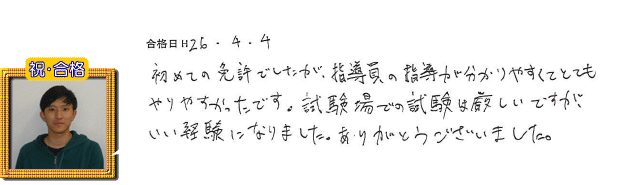 祝・合格
合格日 H26.4.4
初めての免許でしたが、指導員の指導が分かりやすくてとても
やりやすかったです。試験場での試験は厳しいですが、
いい経験になりました。ありがとうございました。